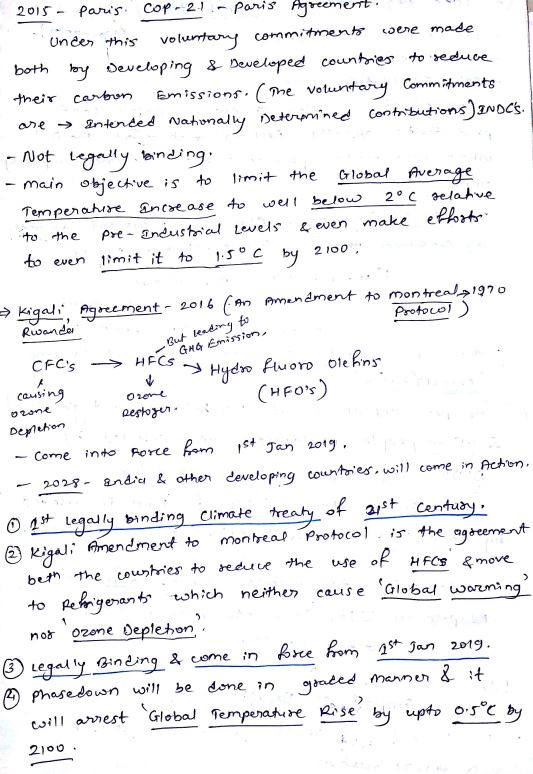 2015 - Paris. COP-21. - Paris Agreement.
Under this voluntary commitments were made
both by Developing & Developed countries to reduce
their carbon Emissions. (The voluntary Commitments
are → Intended Nationally Determined Contributions) INDC's.
- Not legally binding.
- main objective is to limit the Global Average
Temperature Increase to well below 2°C relative
to the Pre-Industrial Levels & even make efforts
to even limit it to 1.5°C by 2100.
→ Kigali, Agreement - 2016 (An Amendment to montreal → 1970
Rwanda Protocol)
But leading to
GHG Emission.
CFC's → HFCs → Hydro fluoro Olefins
causing ozone (HFO's)
ozone Restorer.
Depletion
- Come into Force from 1st Jan 2019.
- 2028 - India & other developing countries. will come in Action.
① 1st legally binding Climate treaty of 21st Century.
② Kigali Amendment to montreal Protocol is the agreement
beth the countries to reduce the use of HFCs & move
to Refrigerants which neither cause 'Global warming'
nor 'Ozone Depletion'.
③ Legally Binding & come in force from 1st Jan 2019.
④ Phasedown will be done in graded manner & it
will arrest 'Global Temperature Rise' by upto 0.5°C by
2100.